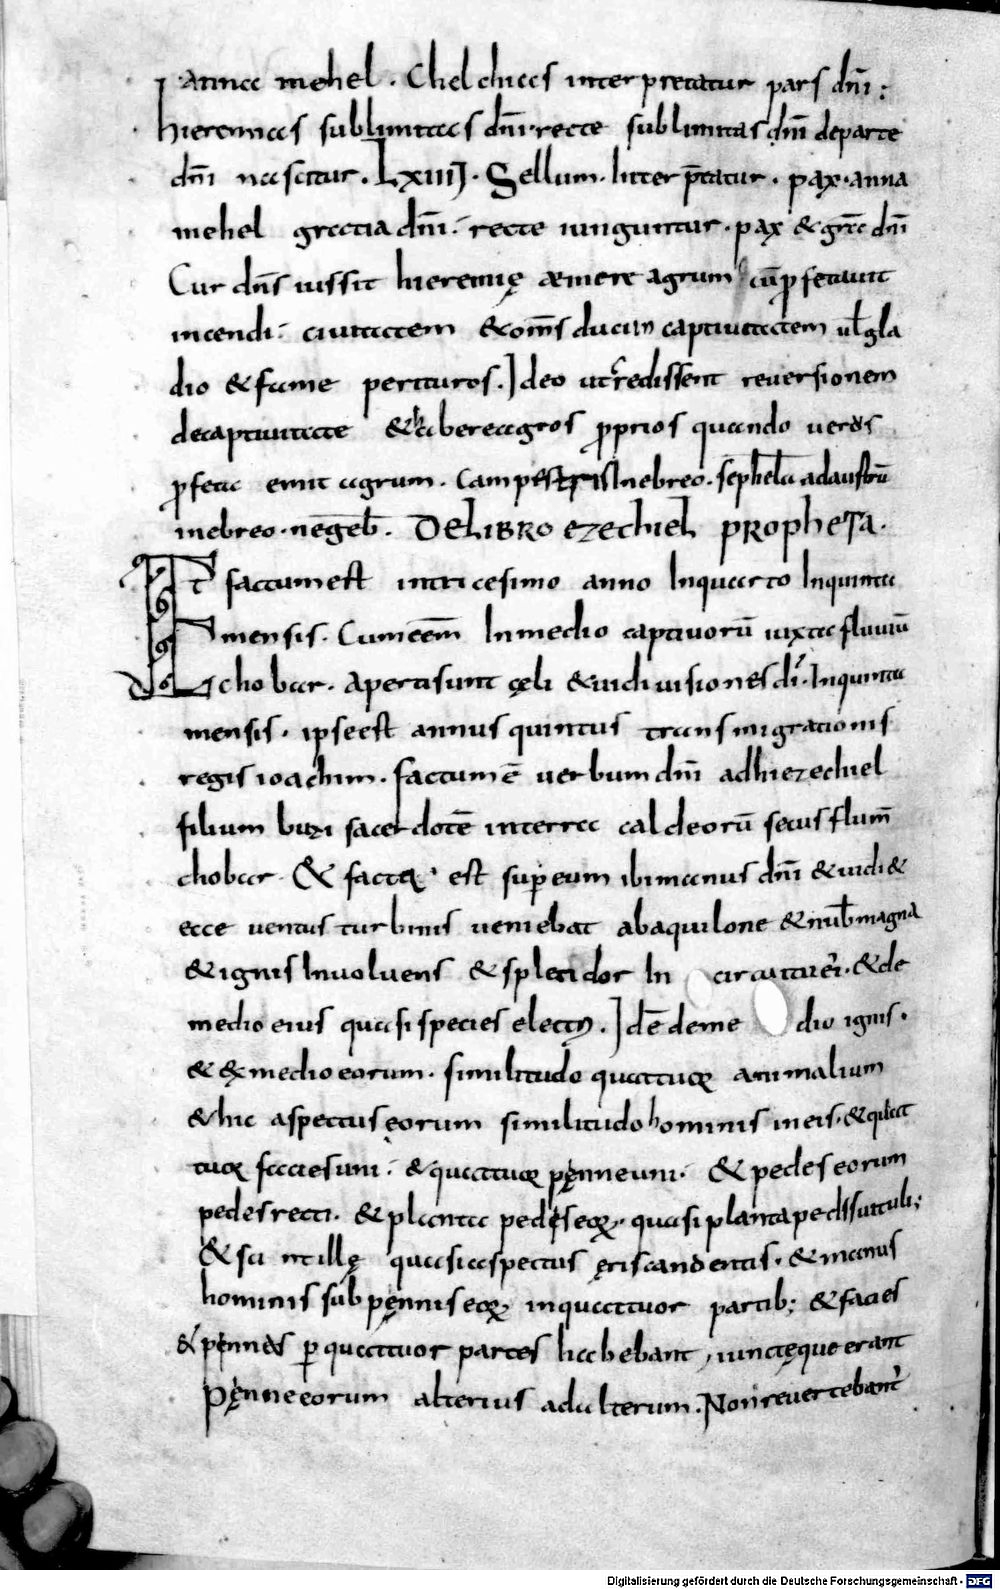 annæ mehel . Chelchias interpretatur pars dñi ;
hieremias sublimitas dñi · recte sublimitas dñi de parte
dñi nascitur . LXIII . Sellum · Interp̄tatur · pax · anna
mehel gratia dñi · recte iunguntur · pax & grā dñi
Cur dñs iussit hieremię æmere agrum cū profetauit
incendi · ciuitatem & om̄s ducun captiuitatem ul̄ gla
dio & fame perituros . Ideo ut credissent reuersionem
de captiuitate & habere agros proprios quando uerus
profeta emit agrum . Campestris In ebreo · sephela ad austrū
in ebreo · negeb . DE LIBRO EZECHIEL PROPHETA ·
ET factum est in tricesimo anno In quarto In quinta
mensis . Cum eēm In medio captiuorū iuxta fluuiū
chobar · aperti sunt cęli & uidi uisiones di · In quinta
mensis . ipse est annus quintus transmigrationis
regis ioachim . factum ē uerbum dñi ad hiezechiel
filium buzi sacerdotē in terra caldeorū secus flum̄
chobar · & facta est super eum ibi manus dñi & uidi &
ecce uentus turbinis ueniebat ab aquilone & nub̄ magna
& ignis Inuoluens & splendor In circuitu ei · & de
medio eius quasi species electri . Idē de me dio ignis ·
& ex medio eorum · similitudo quatuor animalium
& hic aspectus eorum similitudo hominis in eis · & quat
tuor facies uni · & quattuor pęnne uni · & pedes eorum
pedes recti . & planta pedis eorum quasi planta pedis uituli ;
& scintillę quasi aspectus ęris candentis · & manus
hominis sub pęnnis eorum in quattuor partib ; & facies
& pennas per quattuor partes habebant , iunctęque erant
pęnne eorum alterius ad ulterum . Non reuertebant
Digitalisierung gefördert durch die Deutsche Forschungsgemeinschaft - DFG